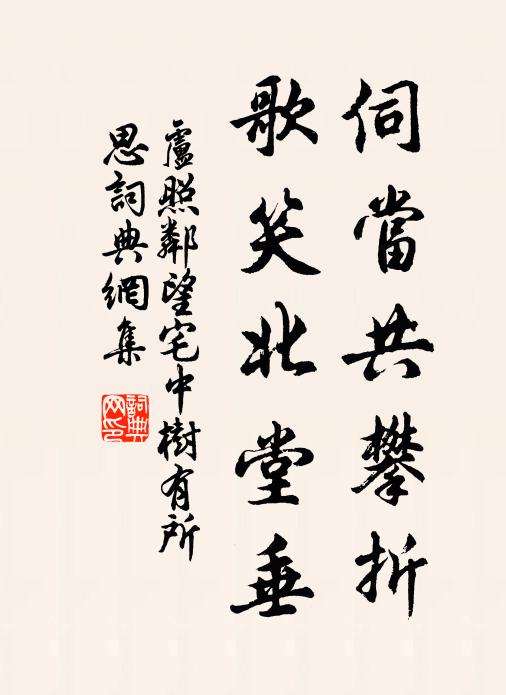 伺當共攀折
歌笑北堂垂
盧照鄰望宅中樹有所
思詞典網集
詞典
网印